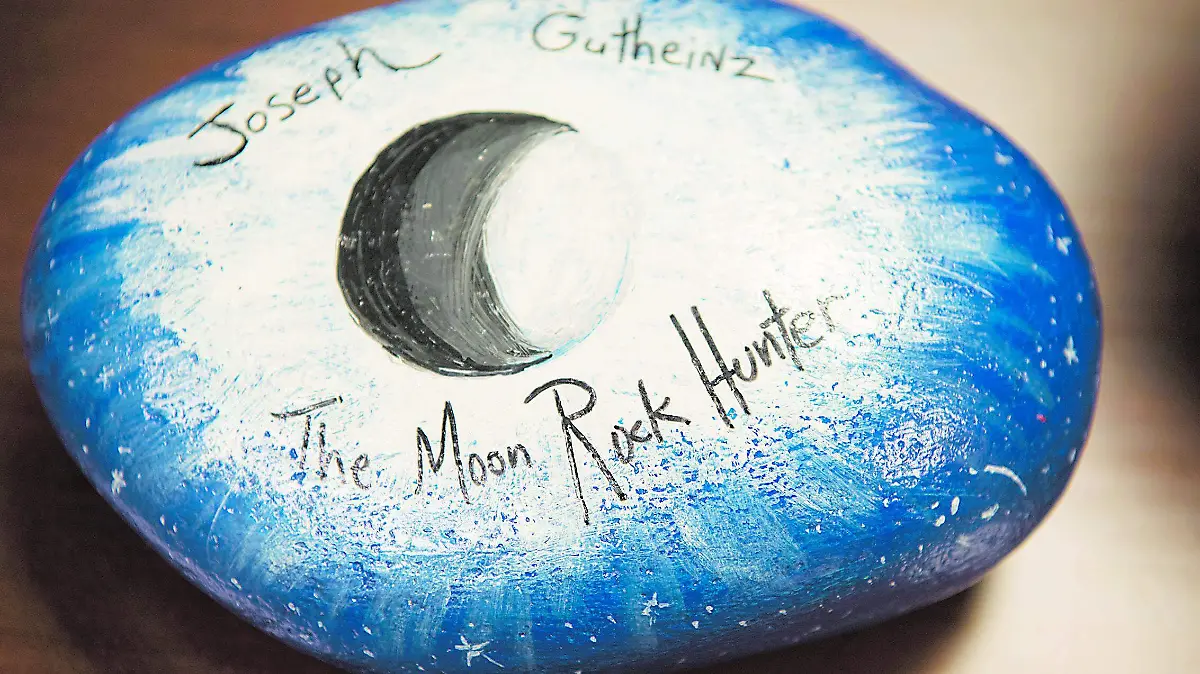 Joseph Gutheinz
The Moon Rock Hunter